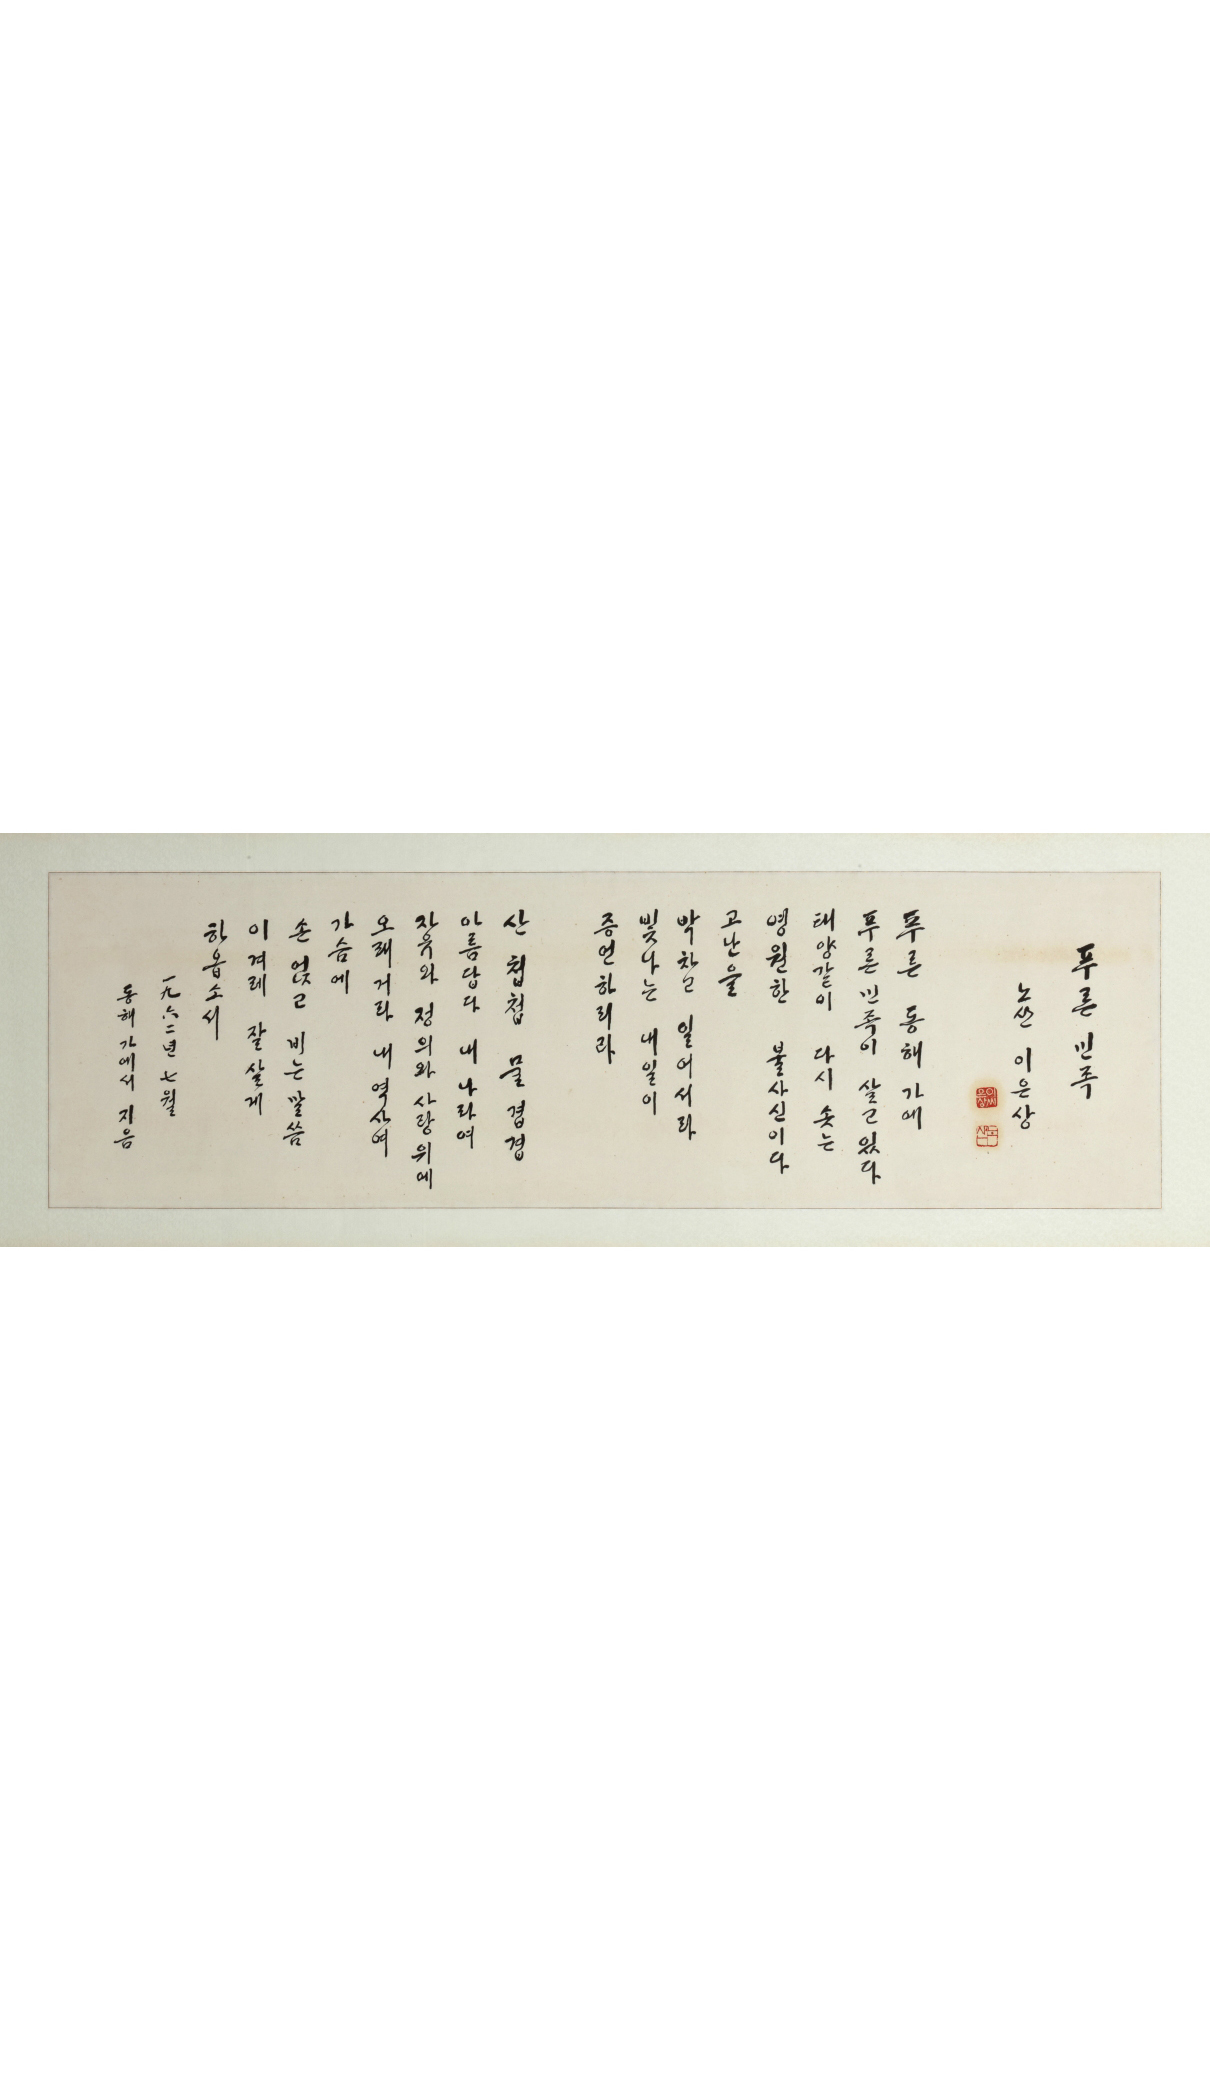 푸른 민족
노산 이은상
푸른 동해 가에
푸른 민족이 살고 있다
태양같이 다시 솟는
영원한 불사신이다
고난을
박차고 일어서라
빛나는 내일이
증언하리라
산 첩첩 물 겹겹
아름답다 내 나라여
자유와 정의와 사랑 위에
오래거라 내 역사여
가슴에
손 얹고 비는 말씀
이 겨레 잘 살게
하옵소서
一九六二년 七월
동해 가에서 지음